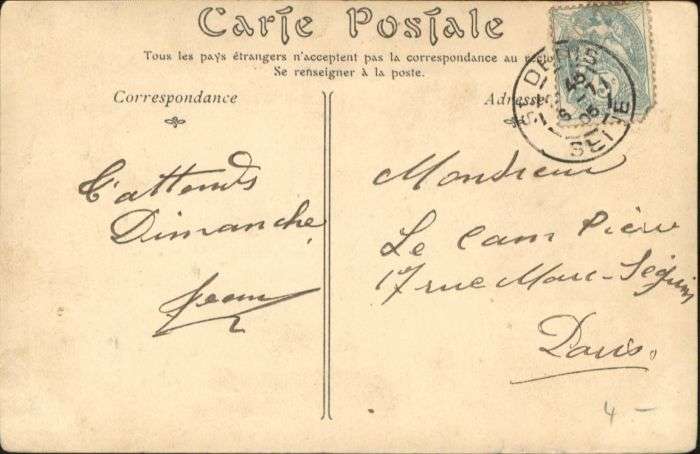 Carte Postale
Tous les pays étrangers n'acceptent pas la correspondance au recto
Se renseigner à la poste.
Correspondance
Adresse
ST DENIS
SEINE
t'attends
Dimanche
Jean
Monsieur
Le Cam Pierre
17 rue Marc-Séguin
Paris.
4 -